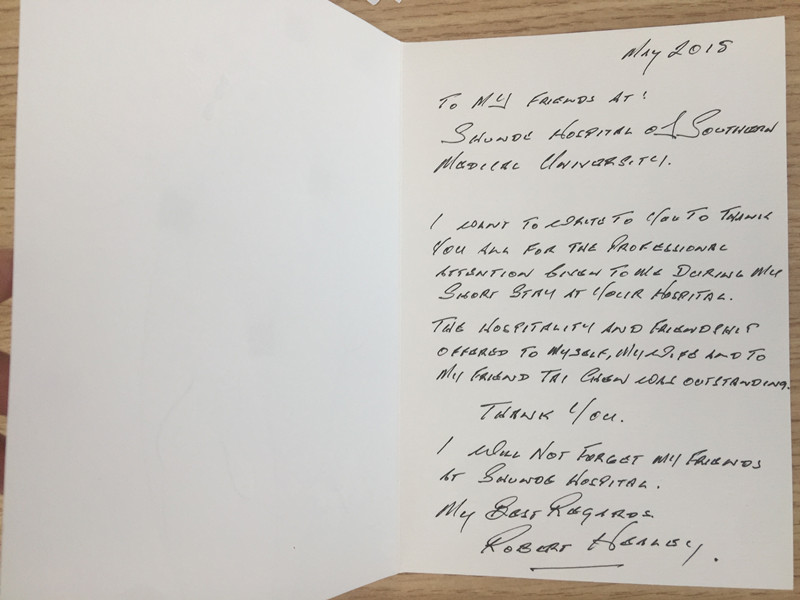 May 2018
TO MY FRIENDS AT:
SHUNDE HOSPITAL OF SOUTHERN
MEDICAL UNIVERSITY.
I WANT TO WRITE TO YOU TO THANK
YOU ALL FOR THE PROFESSIONAL
ATTENTION GIVEN TO ME DURING MY
SHORT STAY AT YOUR HOSPITAL.
THE HOSPITALITY AND FRIENDSHIP
OFFERED TO MYSELF, MY WIFE AND TO
MY FRIEND TAI CHEW WAS OUTSTANDING.
THANK YOU.
I WILL NOT FORGET MY FRIENDS
AT SHUNDE HOSPITAL.
MY BEST REGARDS
ROBERT HEALEY.